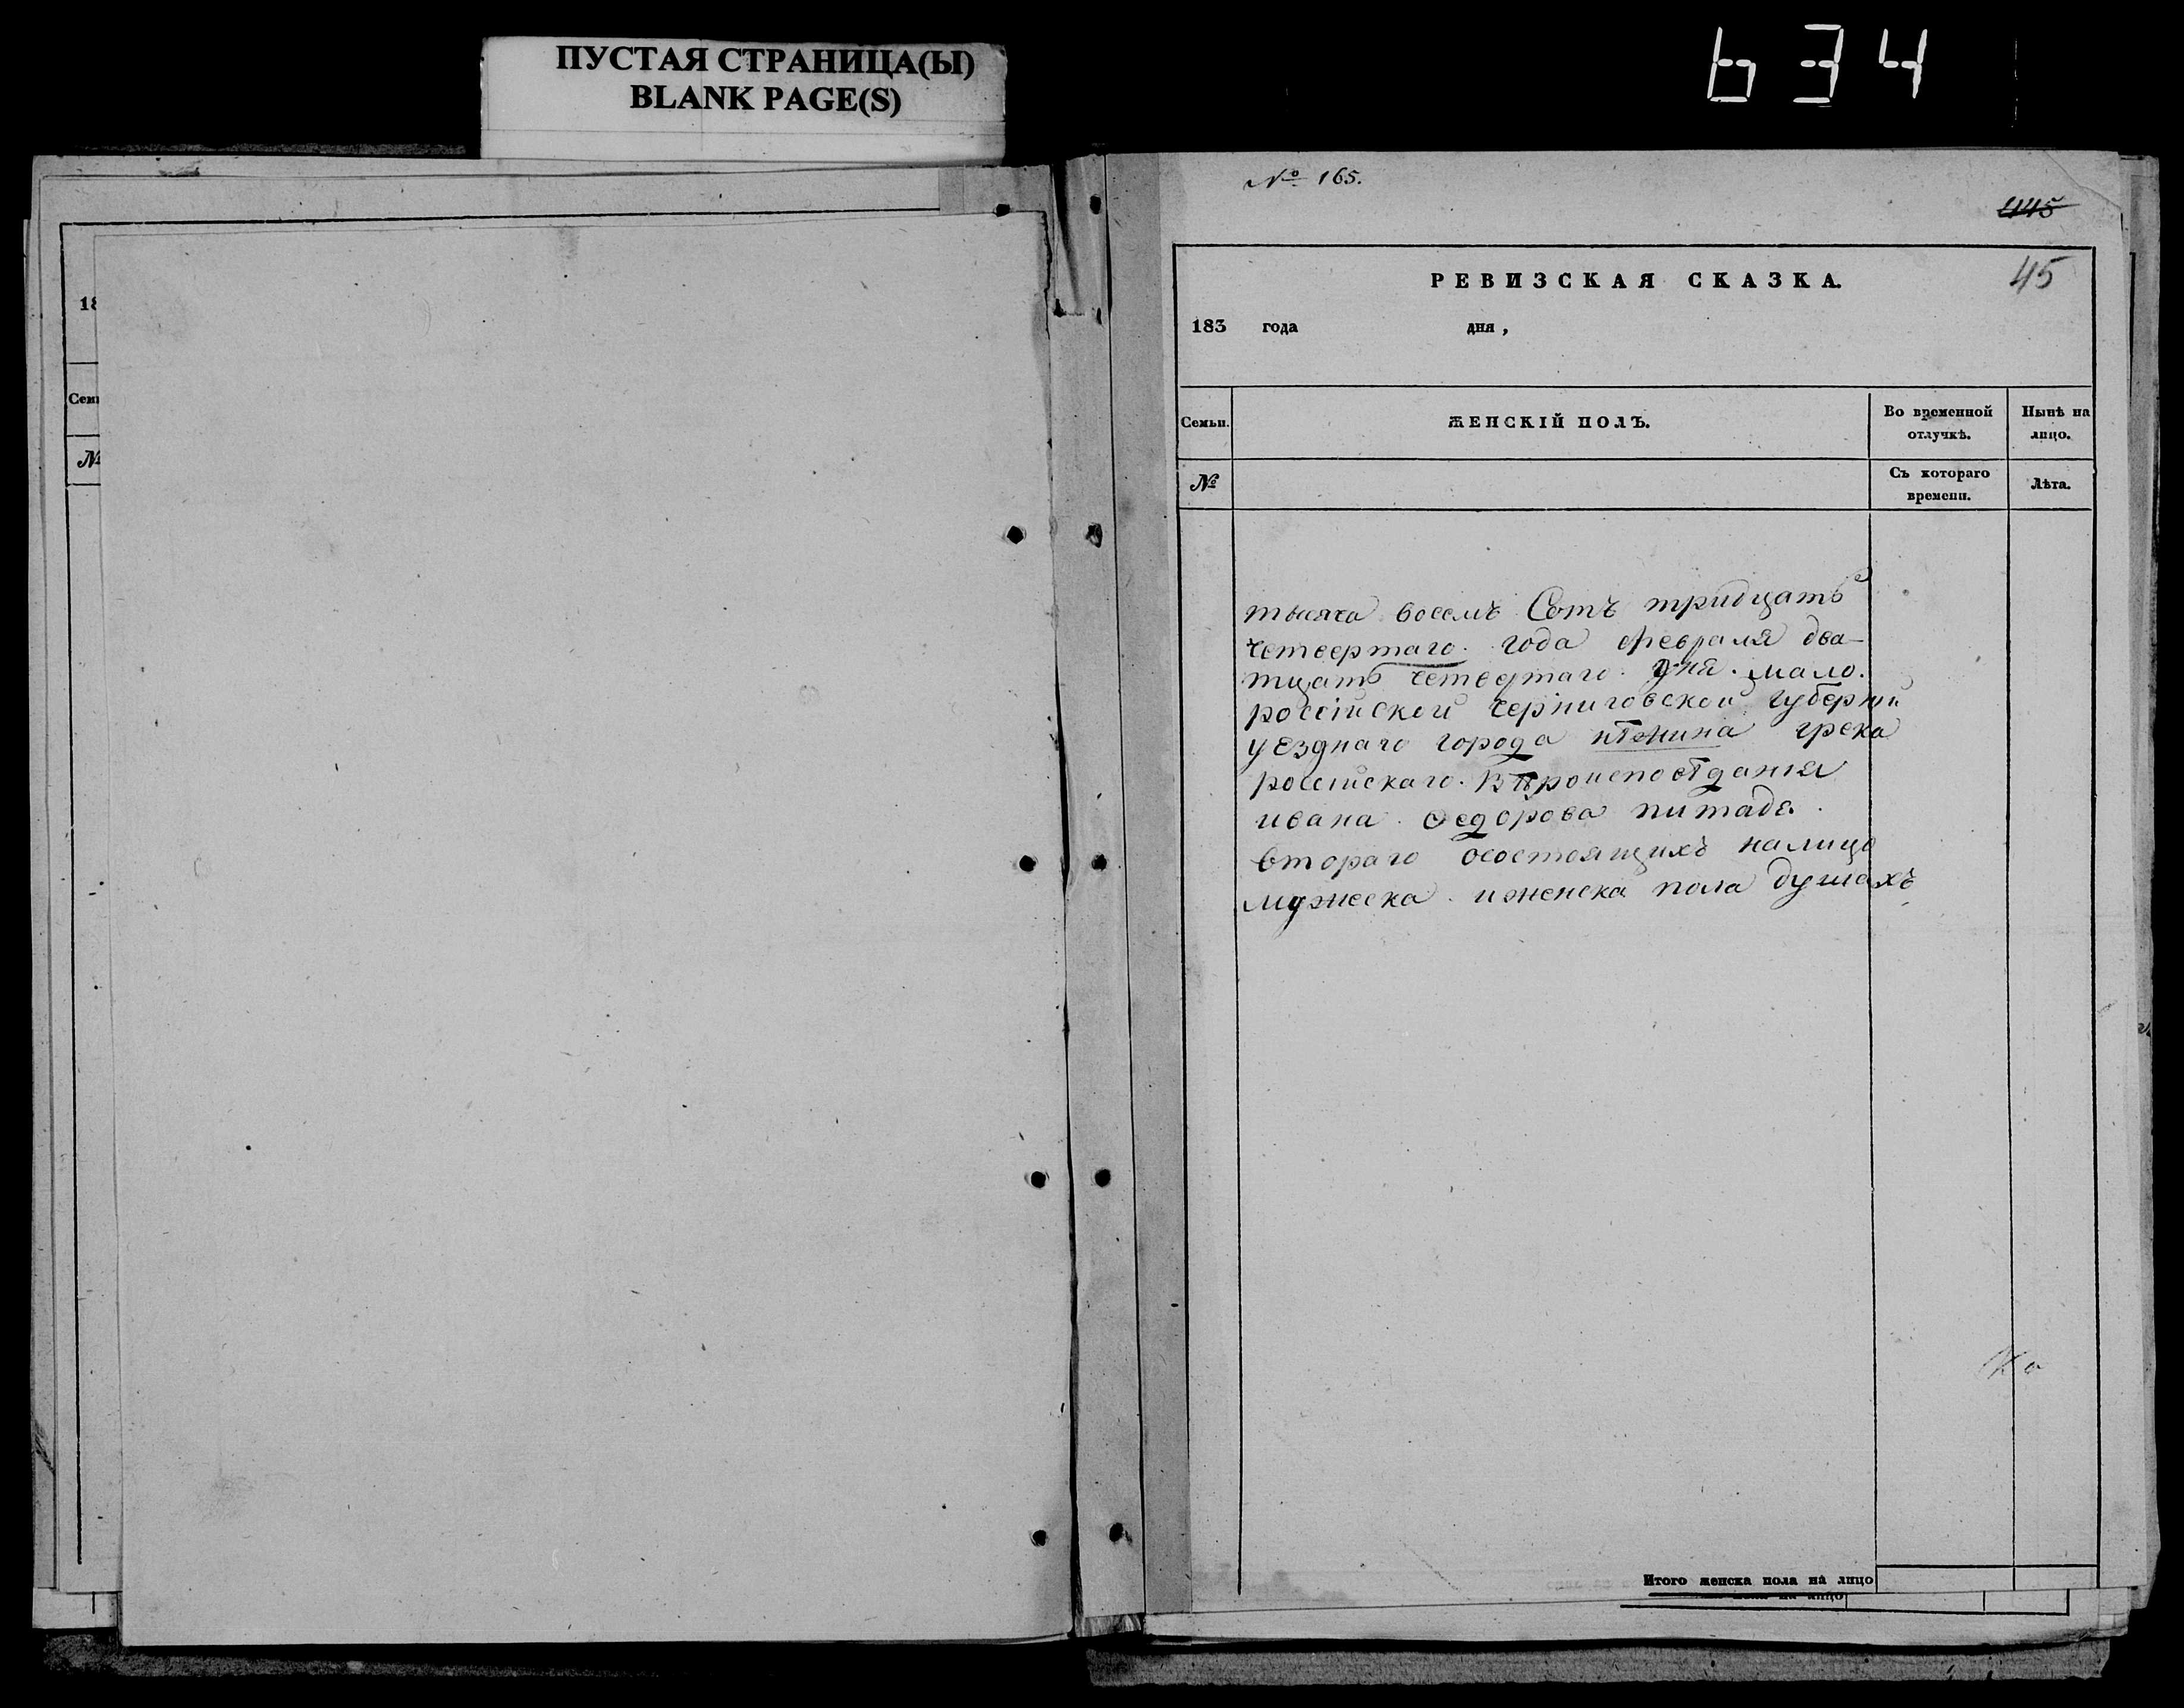 ПУСТАЯ СТРАНИЦА(Ы)
BLANK PAGE(S)
634
18
Сем
№
№ 165.
445
45
РЕВИЗСКАЯ СКАЗКА.
183 года дня,
Семьи. ЖЕНСКІЙ ПОЛЪ. Во временной отлучкѣ. Нынѣ на лицо.
№ Съ котораго времени. Лѣта.
тысяча восемъ Сотъ тридцать
четвертаго. года февраля два-
тцать четвертаго. дня. мало.
россійской черниговской губерніи
уезднаго города нѣжина грека
россійскаго.
ивана. Ѳедорова
втораго осостоящихъ налицо
мужеска. иженска пола душахъ
Итого женска пола на лицо